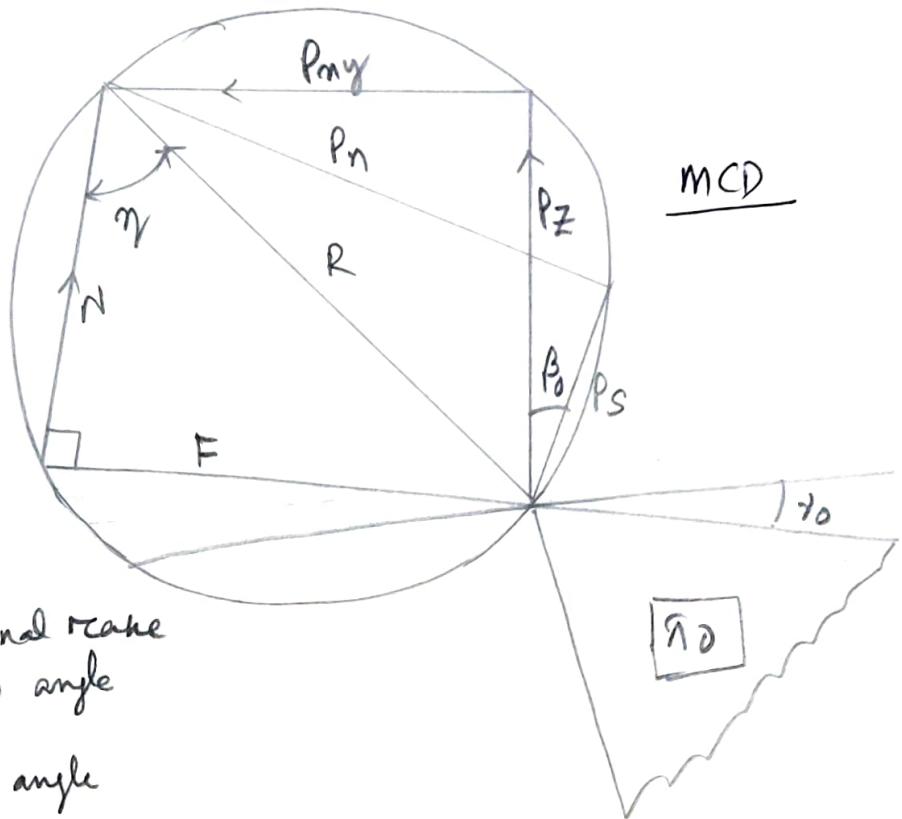 Pxy
Pn
MCD
PZ
η
R
N
β0
Ps
F
γ0
nal rake
π0
angle
angle